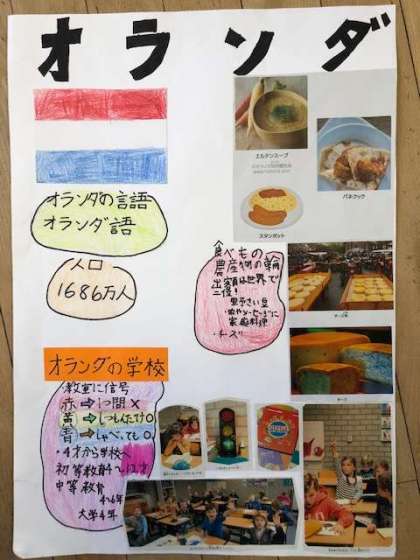 オランダ
オランダの言語
オランダ語
人口
1686万人
エルテンスープ
パネクック
スタンポット
食べもの
農産物の輸
出額は世界で
二位!
・野さい豆
家庭料理
・チーズ
チーズ
オランダの学校
教室に信号
赤⇒
黄⇒しつもんだけ○
青⇒しゃべっても○
・4才から学校へ
初等教育
中等教育
4〜6年
大学4年